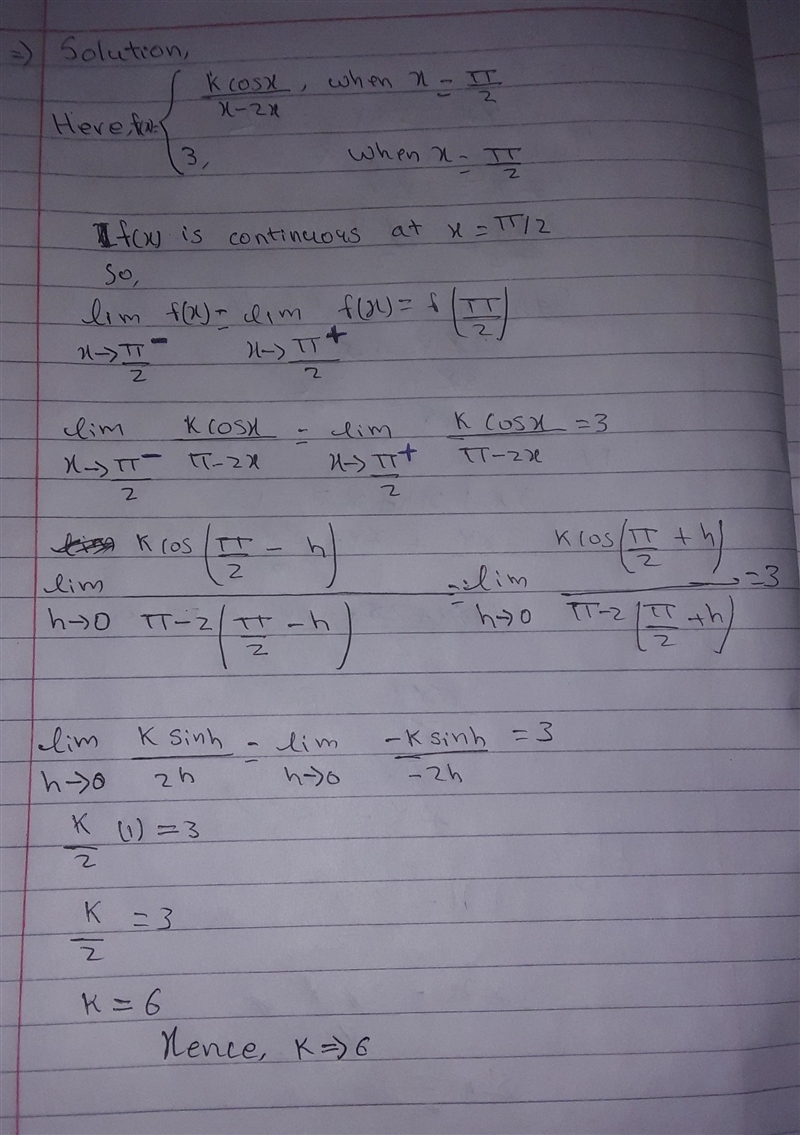 => Solution,
Here, f(x)= { K cosx / x-2x , when x = π/2
3, when x = π/2
If f(x) is continuous at x = π/2
So,
lim x→π/2⁻ f(x) = lim x→π/2⁺ f(x) = f(π/2)
lim x→π/2⁻ K cosx / π-2x = lim x→π/2⁺ K cosx / π-2x = 3
lim h→0 K cos(π/2 - h) / π-2(π/2 - h) = lim h→0 K cos(π/2 + h) / π-2(π/2 + h) = 3
lim h→0 K sinh / 2h = lim h→0 -K sinh / -2h = 3
K/2 (1) = 3
K/2 = 3
K = 6
Hence, K => 6